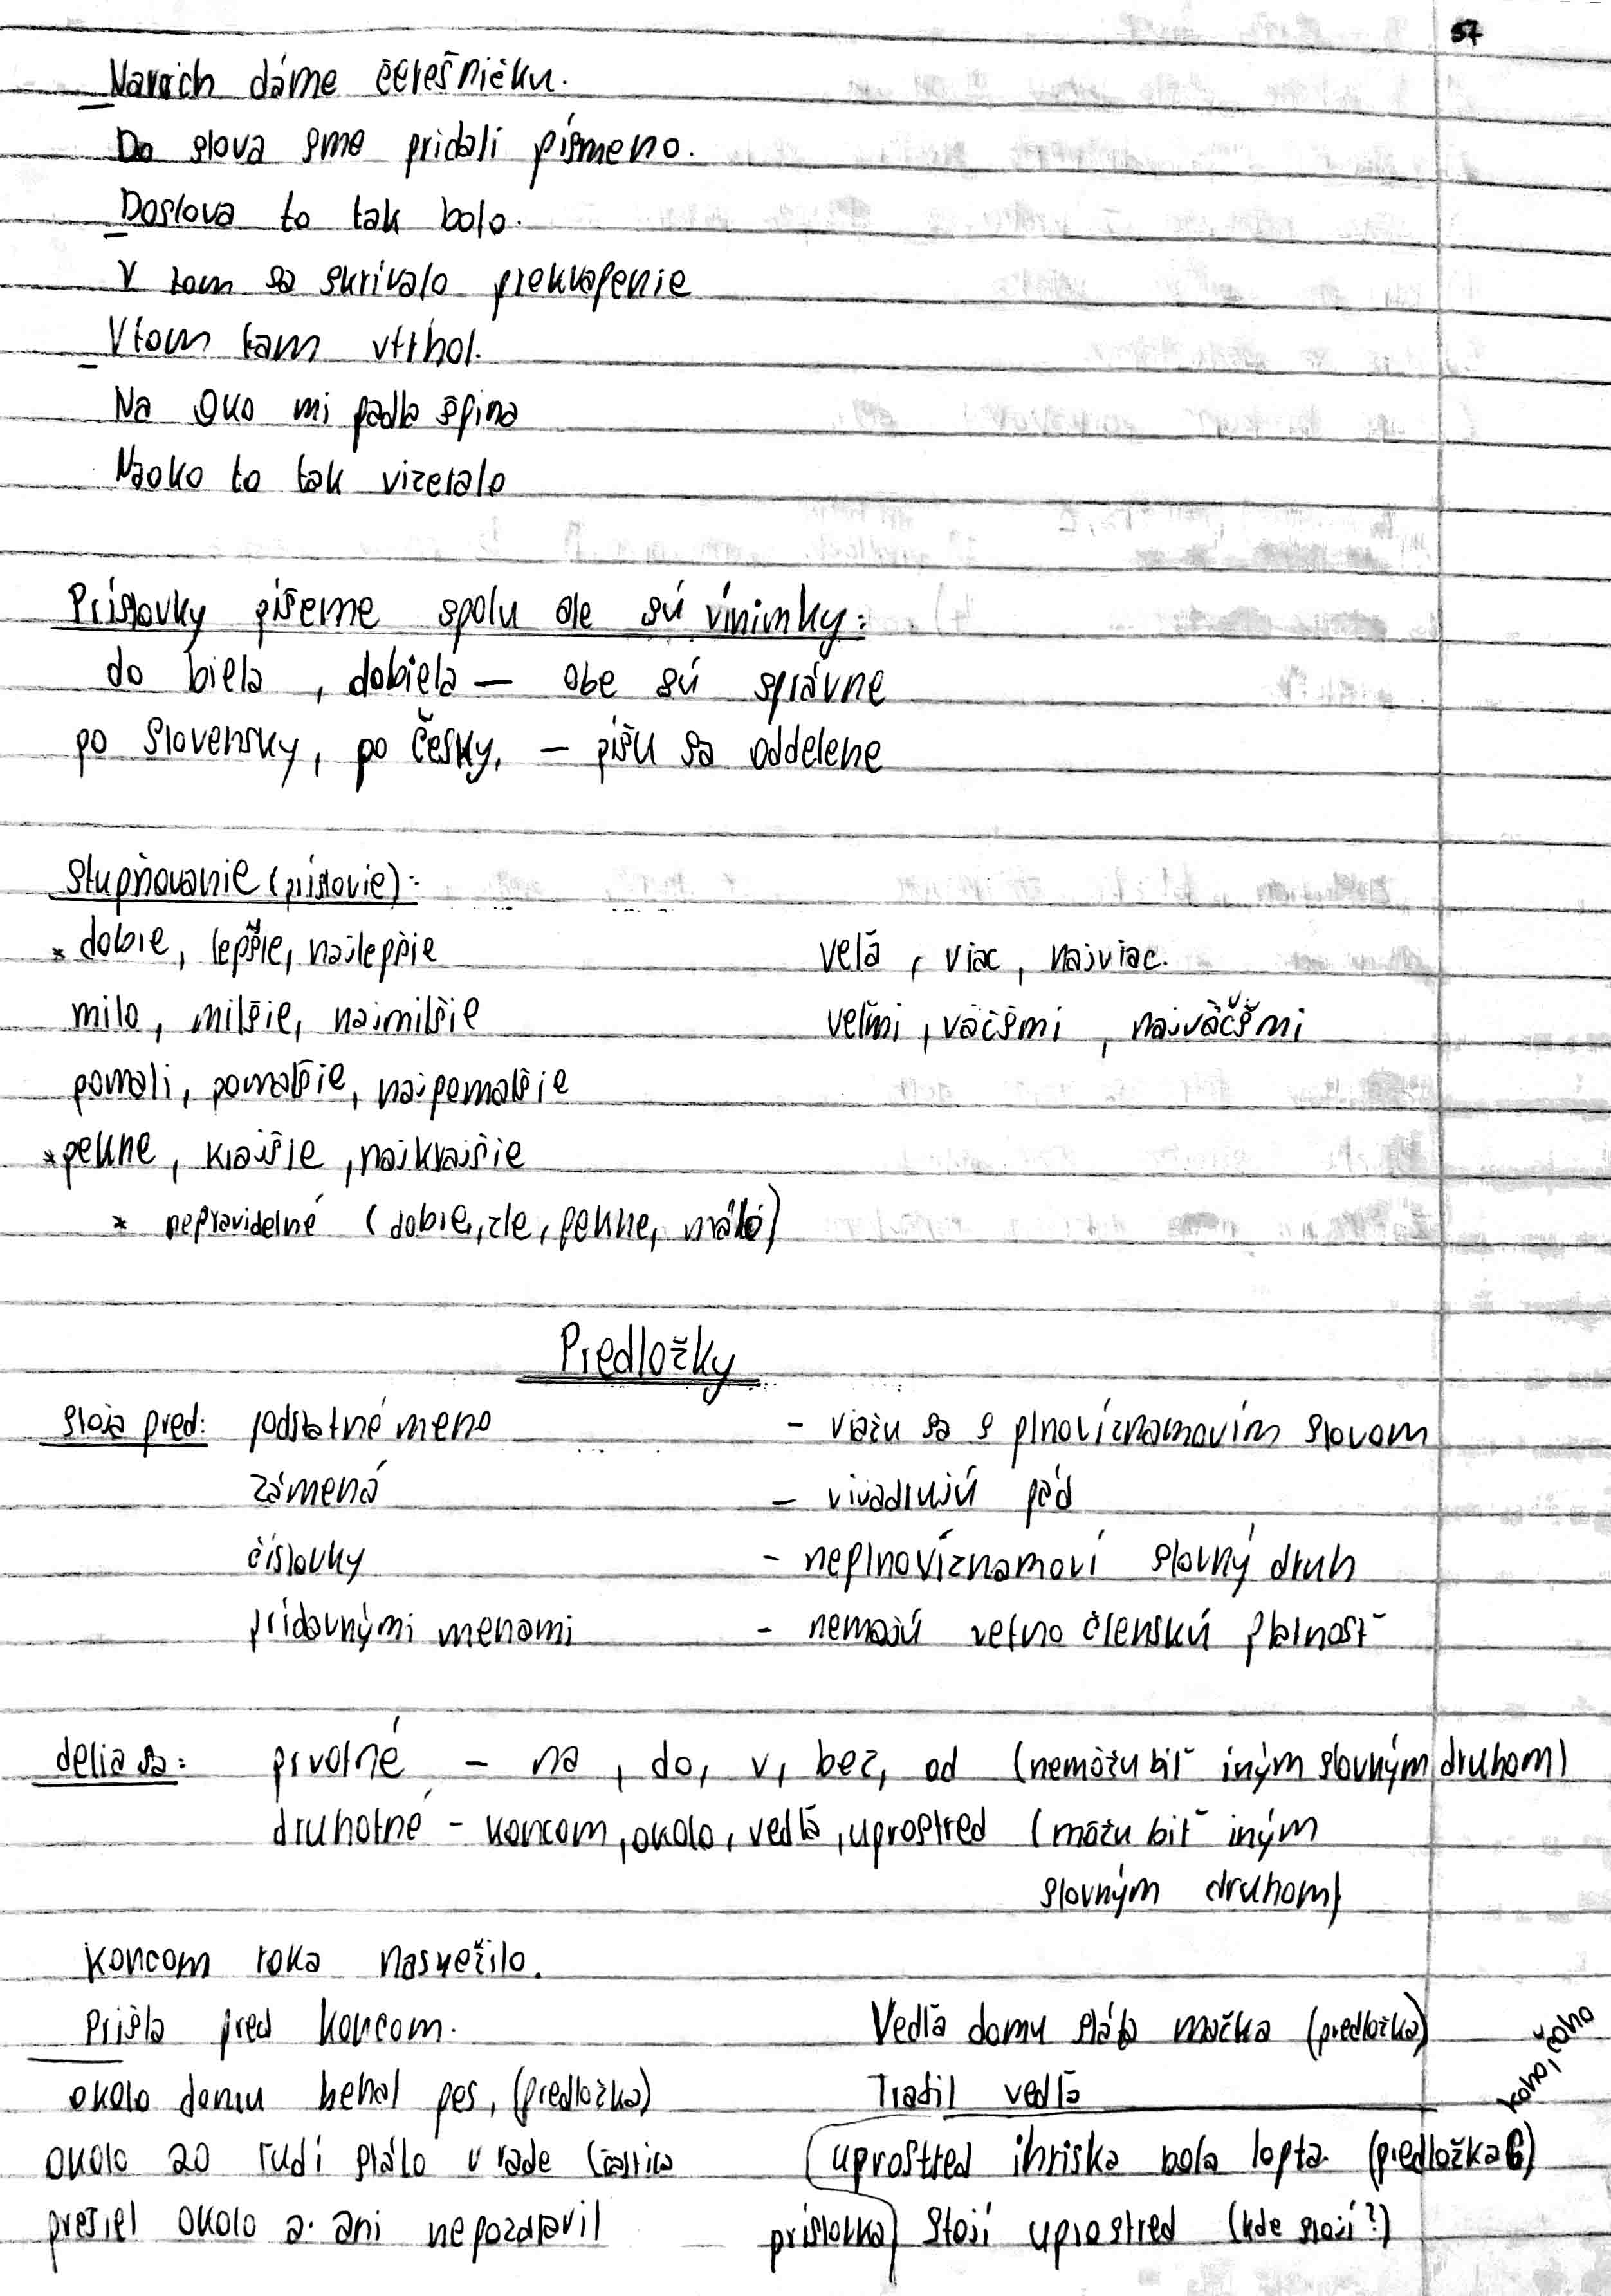 57
Navrch dáme čerešničku.
Do slova sme pridali písmeno.
Doslova to tak bolo.
V tom sa skrívalo prekvapenie
Vtom tam vtrhol.
Na oko mi padla špina
Naoko to tak vizeralo
Príslovky píšeme spolu ale sú vínimky:
do biela, dobiela — obe sú správne
po Slovensky, po česky, — píšu sa oddelene
Stupňovanie (príslovie):
* dobre, lepšie, najlepšie
veľa, viac, najviac.
milo, milšie, najmilšie
veľmi, väčšmi, najväčšmi
pomali, pomalšie, najpomalšie
* pekne, krajšie, najkrajšie
* nepravidelné (dobre, zle, pekne, málo)
Predložky
stoja pred: podstatné meno - viažu sa s plnovíznamovím slovom
zámená - vivadrujú pád
číslovky - neplnovíznamoví slovný druh
prídavnými menami - nemajú vetno členskú platnosť
delia sa: prvotné - na, do, v, bez, od (nemôžu biť iným slovným druhom)
druhotné - koncom, okolo, vedľa, uprostred (môžu biť iným
slovným druhom)
Koncom roka nasnežilo.
Prišla pred koncom.
Vedľa domu stála mačka (predložka)
koho, čoho
okolo domu behal pes, (predložka)
Trafil vedľa
okolo 20 ľudí stálo v rade (častica
(uprostred ihriska bola lopta. (predložka G)
prešiel okolo a ani nepozdravil
príslovka) Stojí uprostred (kde stojí?)